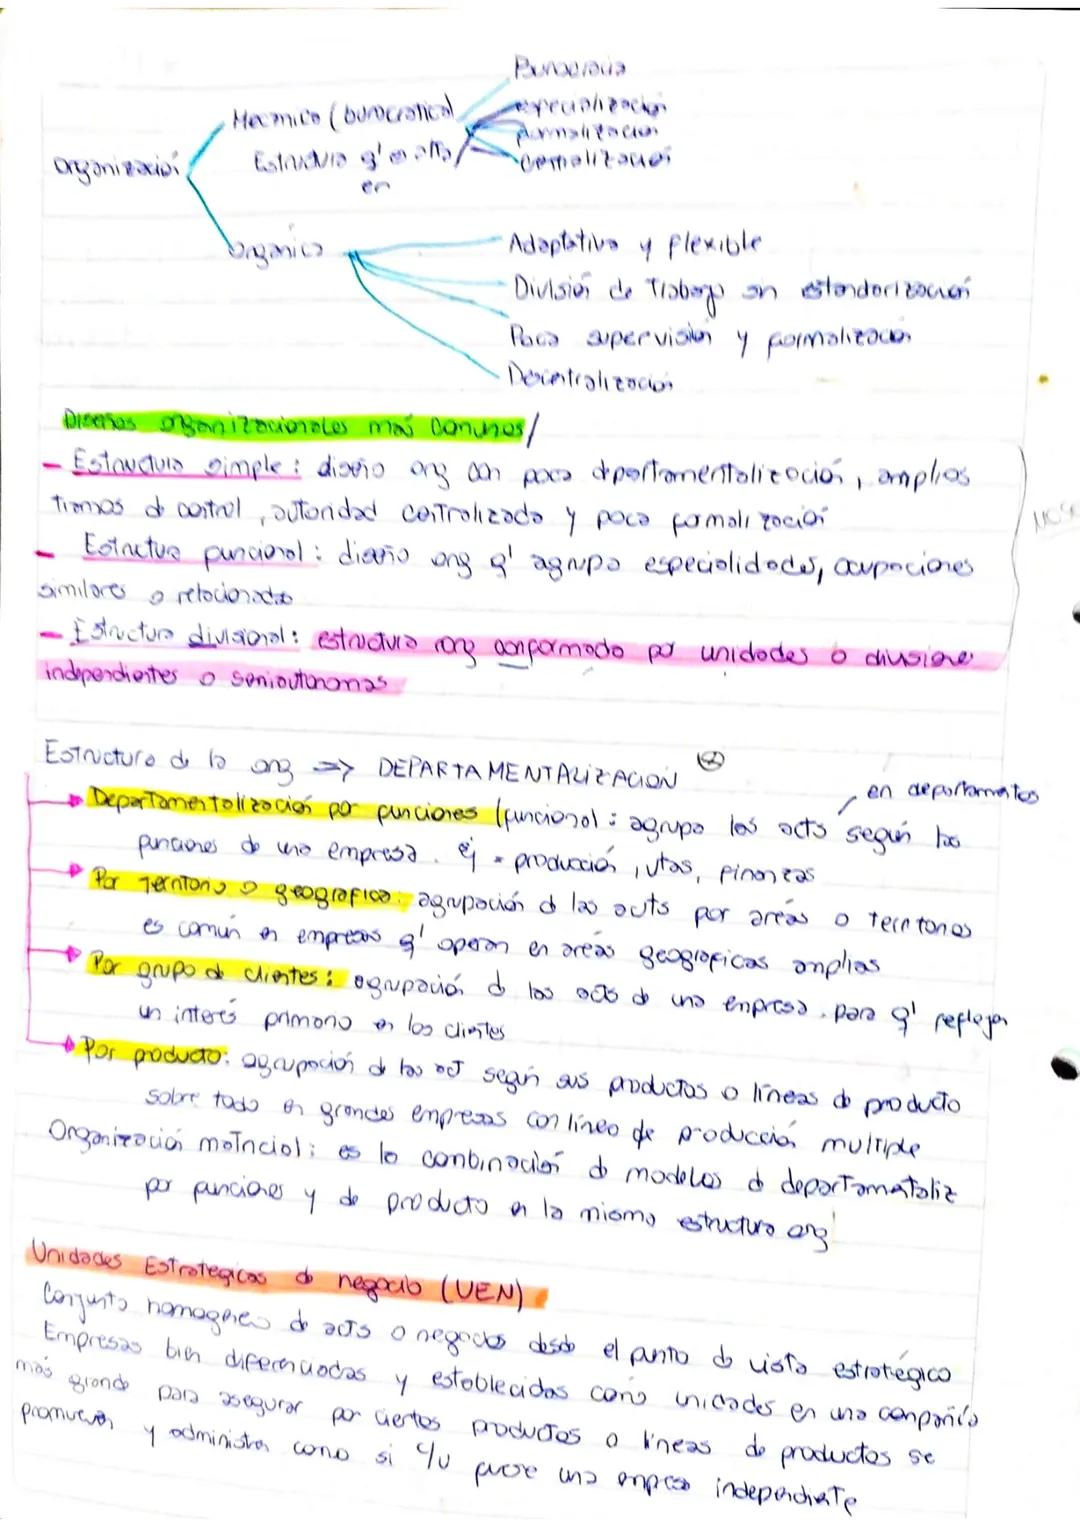 Burocracia
Mecanico (burocratica)
especialización
formalización
Organización
Estructura q' es alta
centralización
en
organica
Adaptativa y flexible
División de Trabajo sin estandarización
Poca supervisión y formalización
Decentralización
Diseños organizacionales más comunes/
- Estructura simple: diseño org con poca dpartamentalización, amplios
tramos d control, autoridad centralizada y poca formalización
NOSE
- Estructura funcional: diseño org q' agrupa especialidades, ocupaciones
similares o relacionadas
- Estructura divisional: estructura org conformada por unidades o divisiones
independientes o semiautonomas
Estructura de la org => DEPARTAMENTALIZACIÓN
en departamentos
Departamentalización por funciones (funcional: agrupa las acts según las
funciones de una empresa. ej = producción, vtas, finanzas
Por Territorio o geografica: agrupación d las acts por areas o territorios
es común en empresas q' operan en areas geograficas amplias
Por grupo de clientes: agrupación d las acts de una empresa para q' reflejen
un interés primario en los clientes
Por producto: agrupación d las act según sus productos o líneas de producto
sobre todo en grandes empresas con línea de producción multiple
Organización matricial: es la combinación d modelos d departamentaliz
por funciones y de producto en la misma estructura org
Unidades Estrategicas de negocio (UEN)
Conjunto homogeneo de acts o negocios desde el punto de vista estratégico
Empresas bien diferenciadas y establecidas como unidades en una compañía
más grande para asegurar por ciertos productos o líneas de productos se
promueven y administren como si c/u fuese una empresa independiente